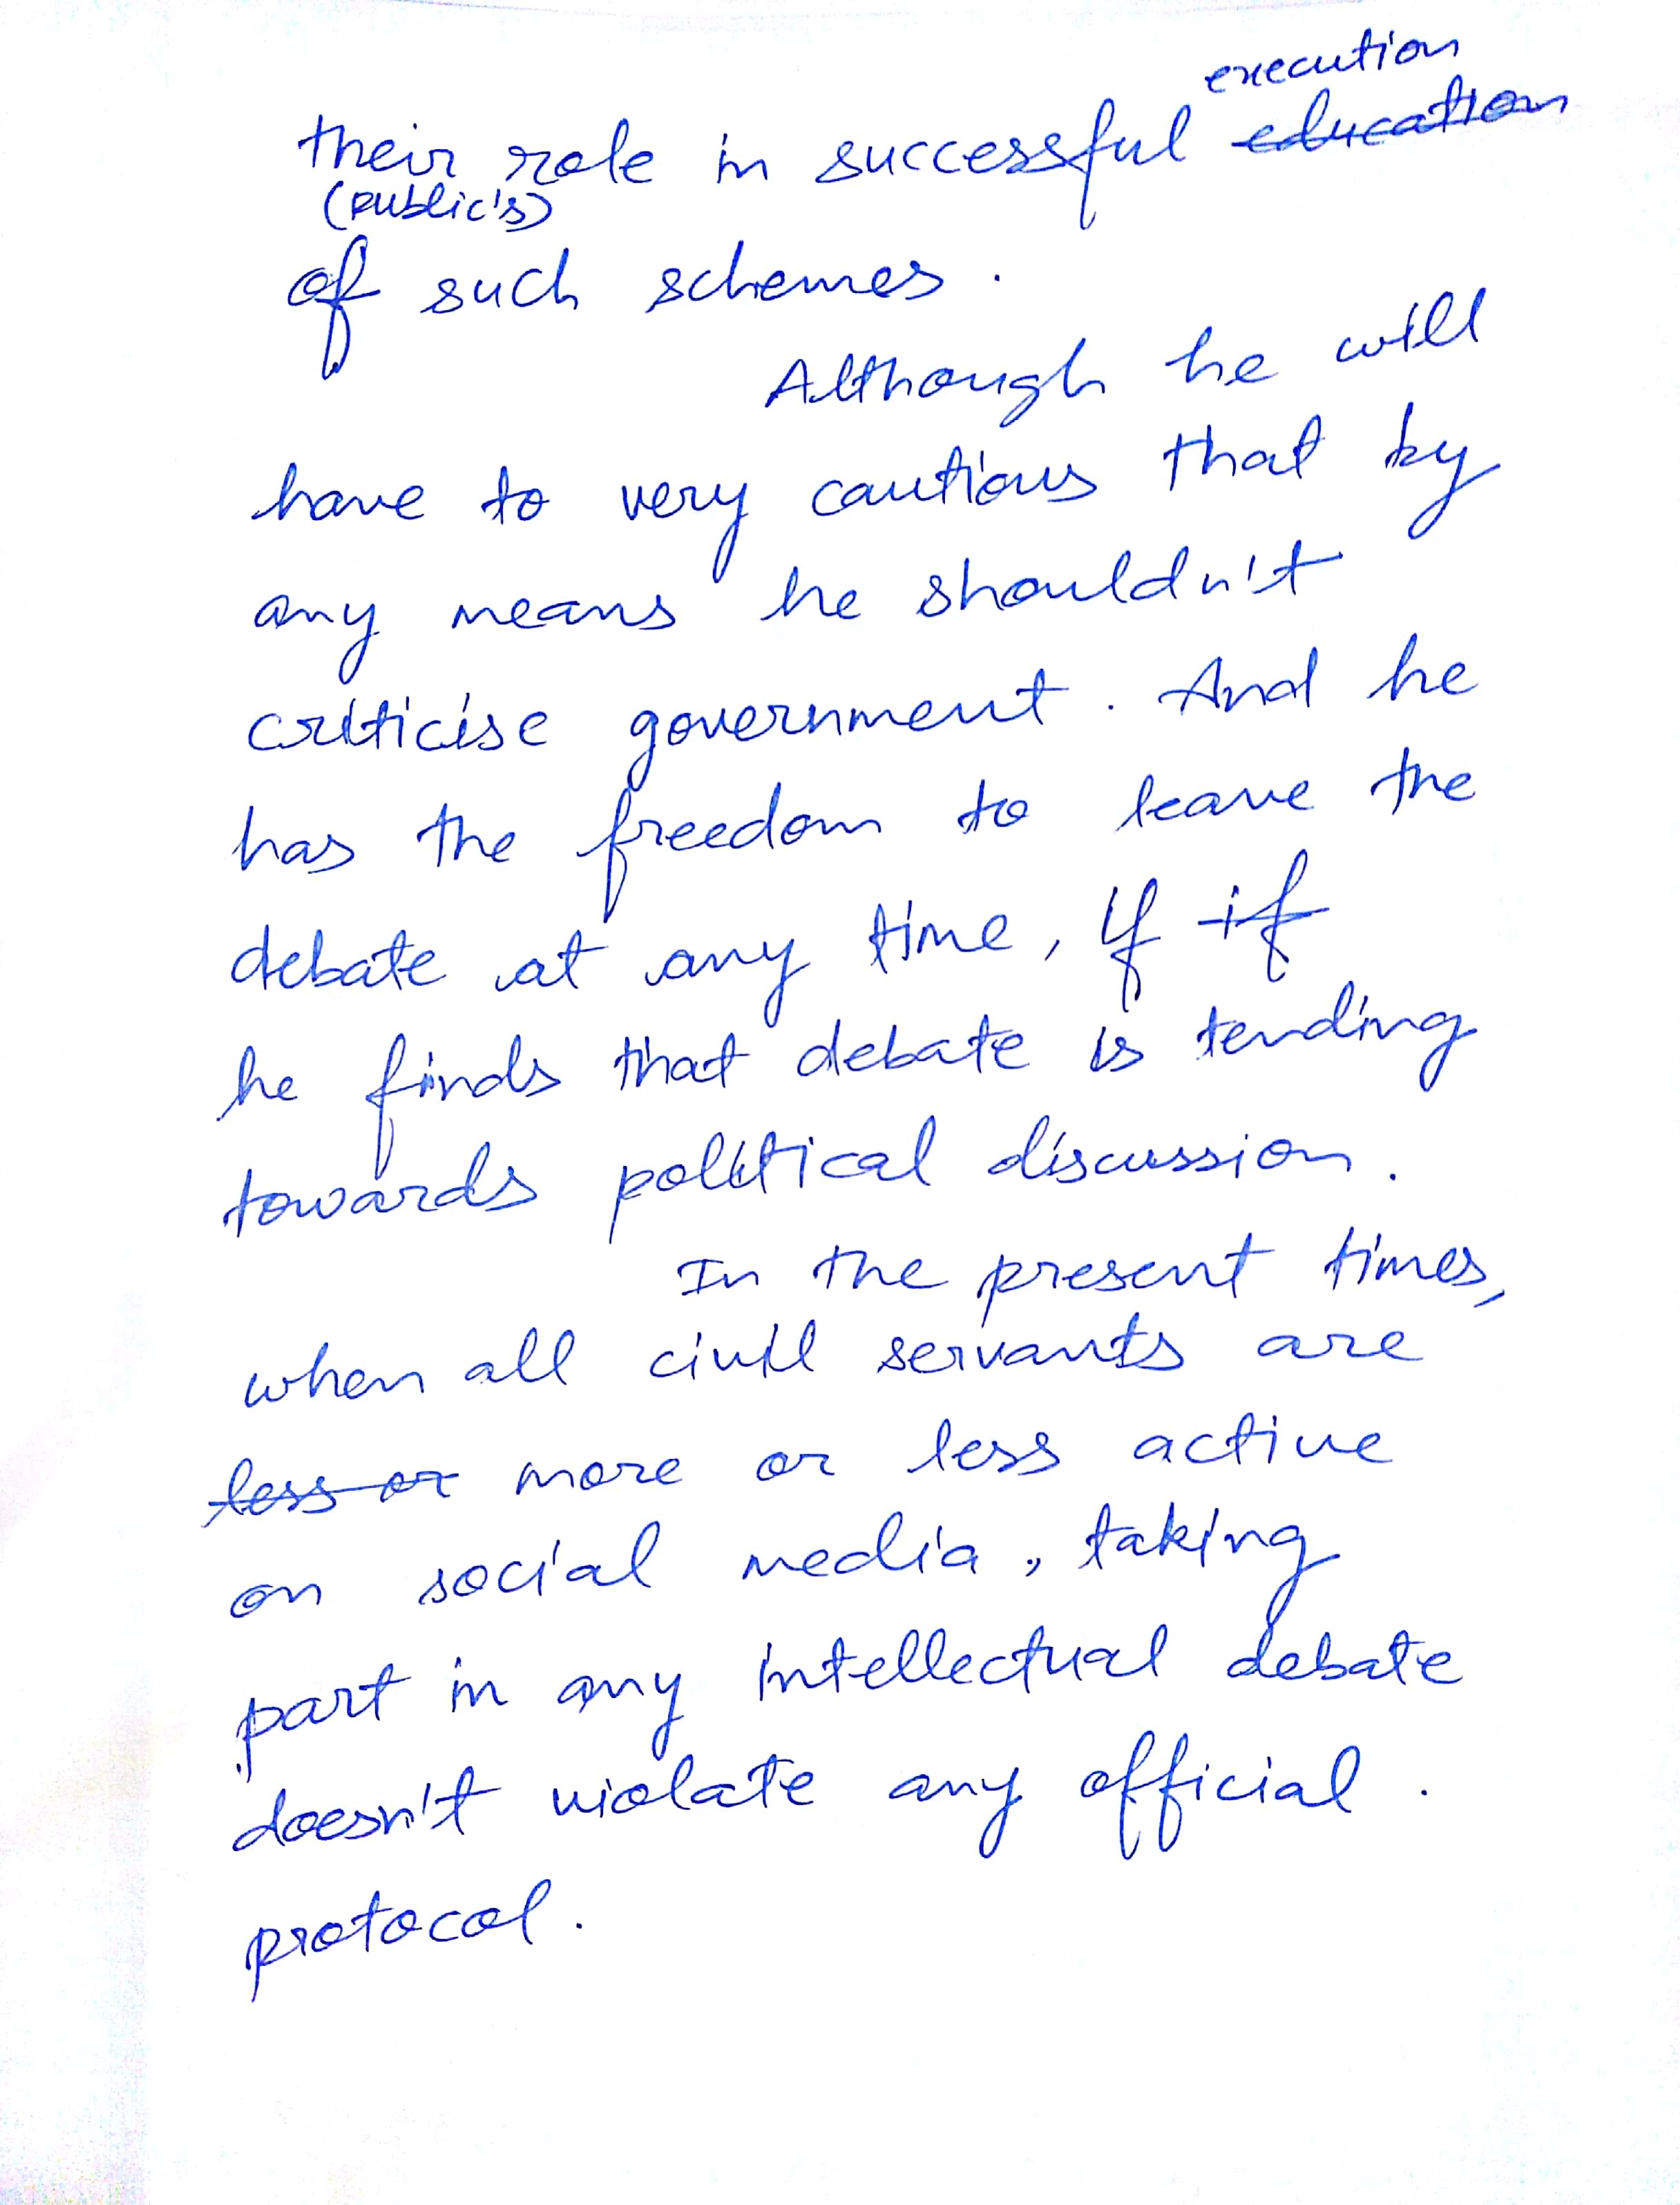 execution
their role in successful education
(public's)
of such schemes.
Although he will
have to very cautious that by
any means he shouldn't
criticise government. And he
has the freedom to leave the
debate at any time, if if
he finds that debate is tending
towards political discussion.
In the present times,
when all civil servants are
less or more or less active
on social media, taking
part in any intellectual debate
doesn't violate any official.
protocol.